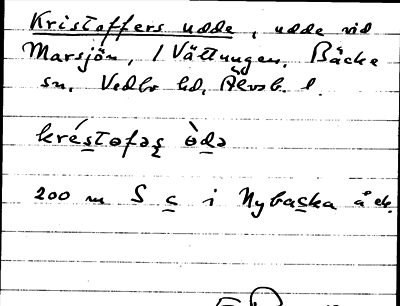 Kristoffers udde, udde vid
Marsjön, i Vättungen, Bäcke
sn, Vedbo hd, Älvsb. l.
kréstofəș òdə
200 m S c i Nybacka å ek.